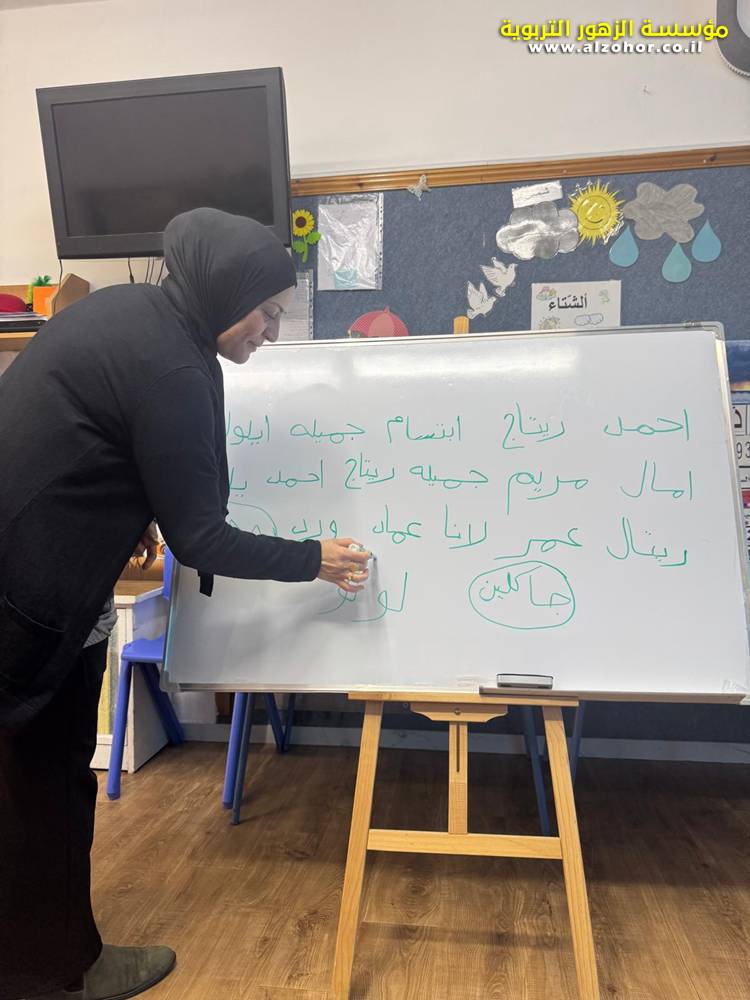 مؤسسة الزهور التربوية
www.alzohor.co.il
الشتاء
احمد ريتاج ابتسام جميله ايلول
امال مريم جميله ريتاج احمد
ريتال عمر لانا عماد ورد
جاكلين